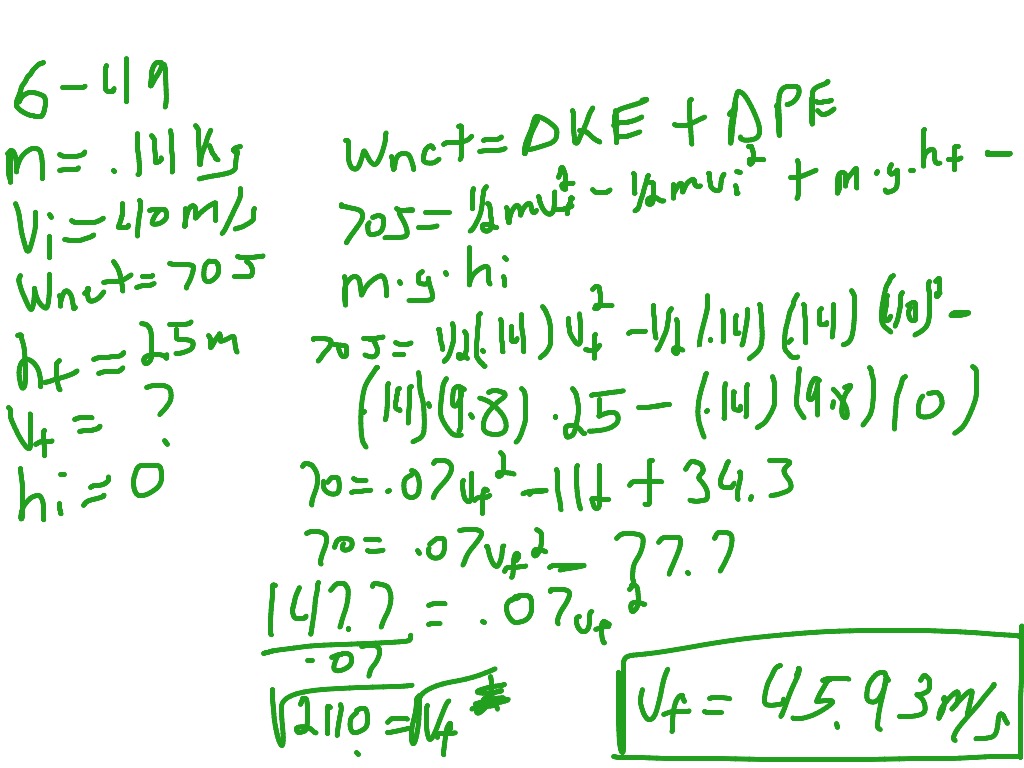 6-49
m = .14 Kg
Vi = 40 m/s
Wnet = 70 J
hf = 25 m
Vf = ?
hi = 0
Wnet = ΔKE + ΔPE
70J = 1/2mvf² - 1/2mvi² + m.g.hf -
m.g.hi
70J = 1/2(.14)Vf² - 1/2(.14)(40)² -
(.14).(9.8).25 - (.14)(9.8)(0)
70 = .07Vf² - 112 + 34.3
70 = .07Vf² - 77.7
147.7 = .07Vf²
.07
√2110 = √Vf
Vf = 45.93 m/s